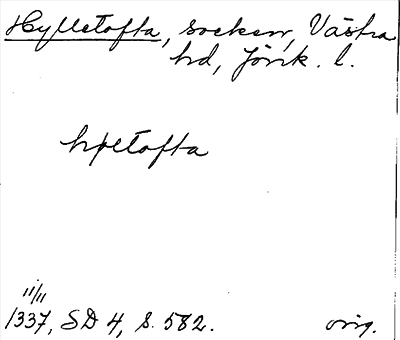 Hylletofta, socken, Västra
hd, Jönk. l.
hyletofta
11/11
1337, SD 4, s. 582.
orig.